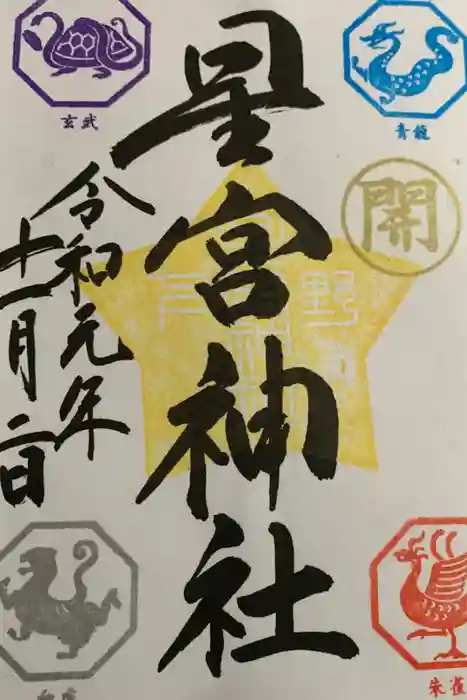 星宮神社
令和元年
十一月二日
玄武
青龍
開
朱雀